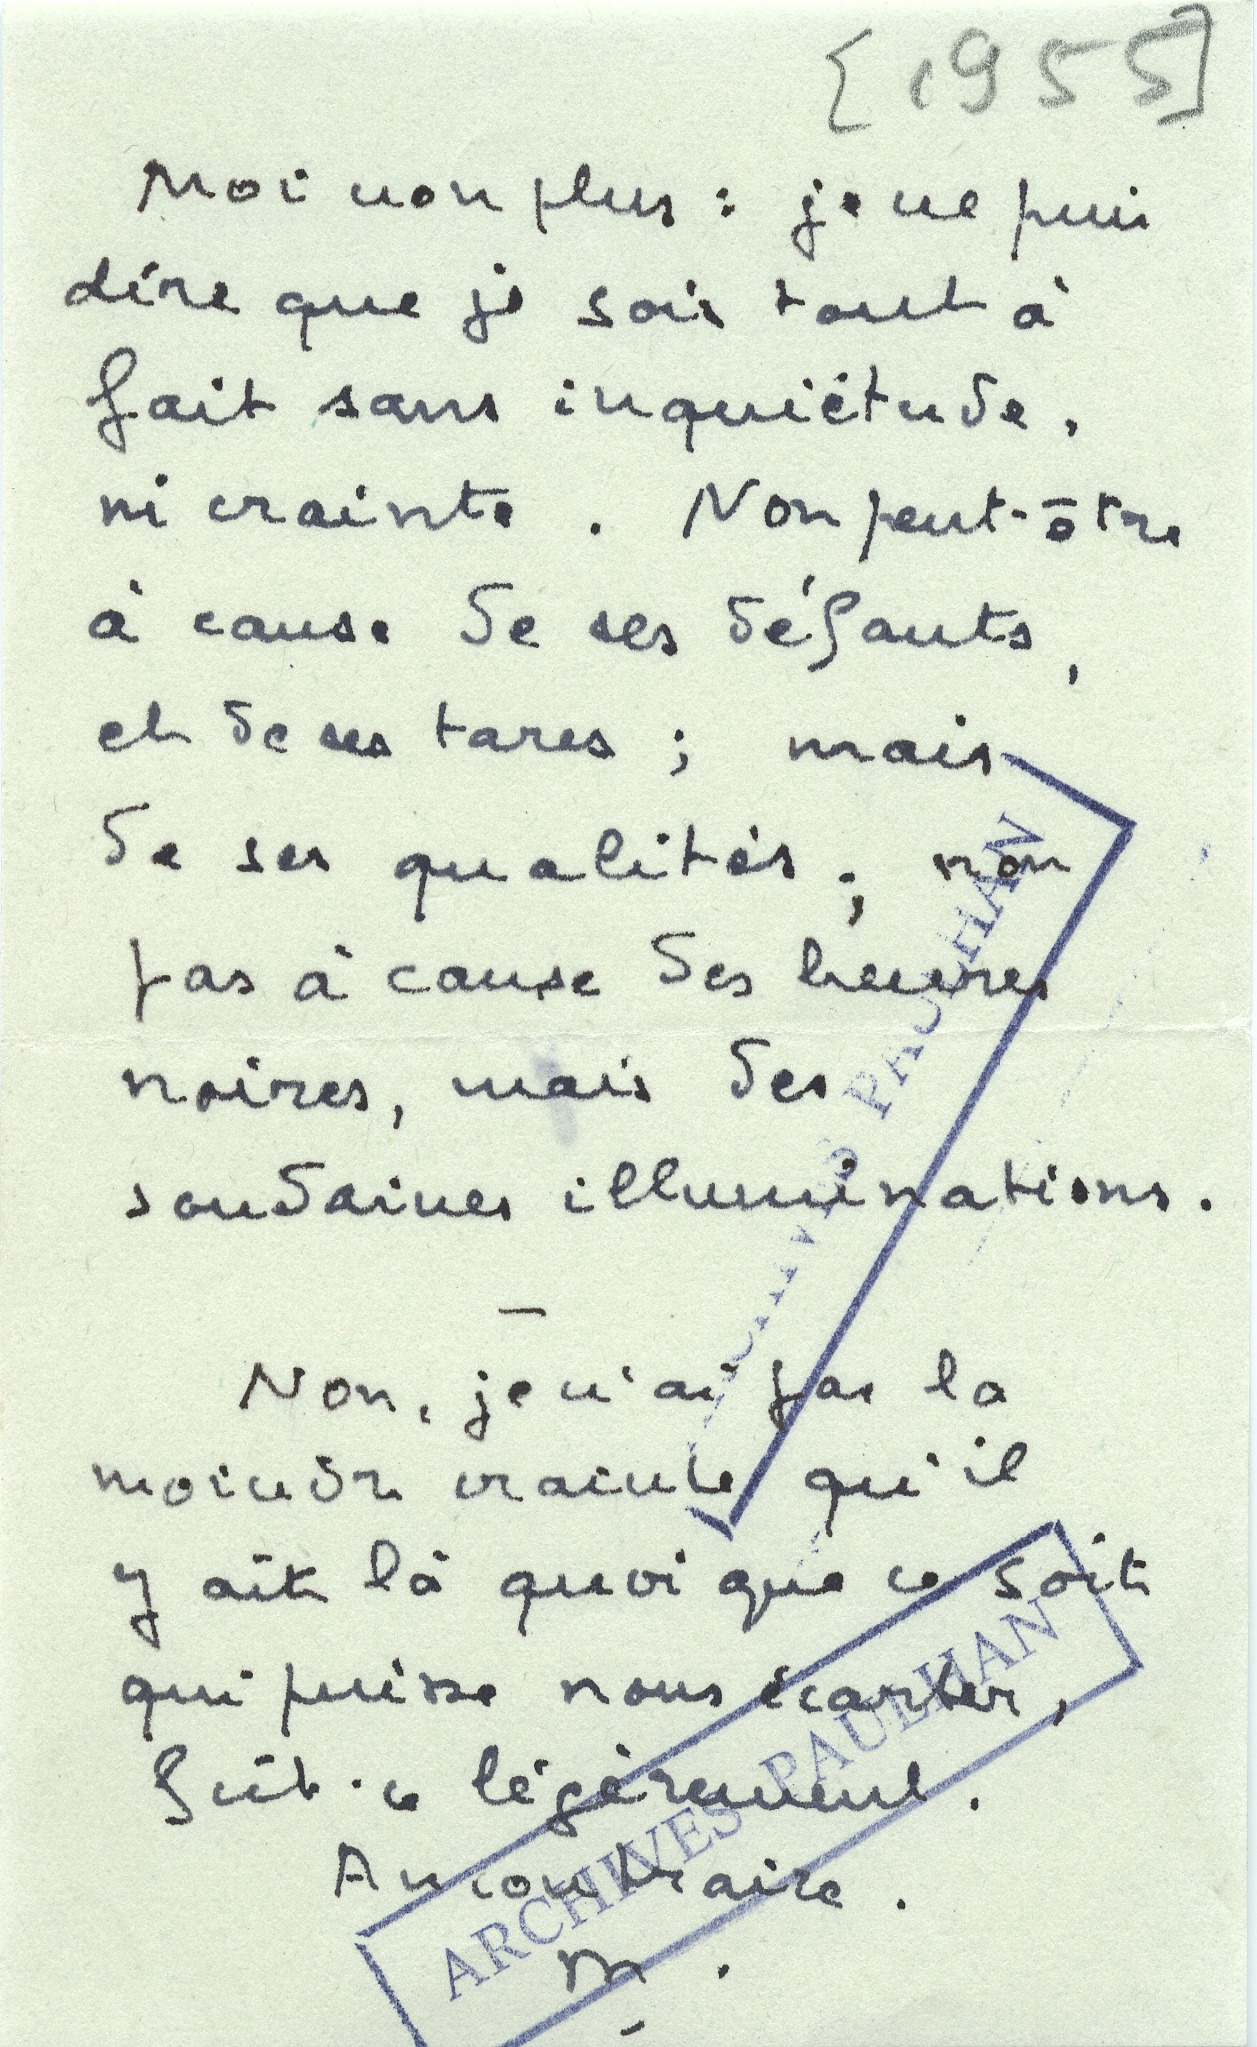 [1955]
Moi non plus : je ne puis
dire que je sois tout à
fait sans inquiétude,
ni crainte. Non peut-être
à cause de ses défauts,
et de ses tares ; mais
de ses qualités ; non
pas à cause des heures
noires, mais des
soudaines illuminations.
—
Non, je n'ai pas la
moindre crainte qu'il
y ait là quoi que ce soit
qui puisse nous écarter,
fût-ce légèrement.
Au contraire.
M.
ARCHIVES PAULHAN
ARCHIVES PAULHAN